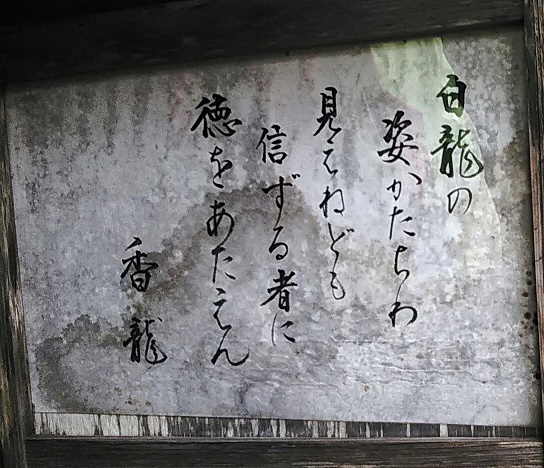 白龍の
姿かたちわ
見えねども
信ずる者に
徳をあたえん
香龍